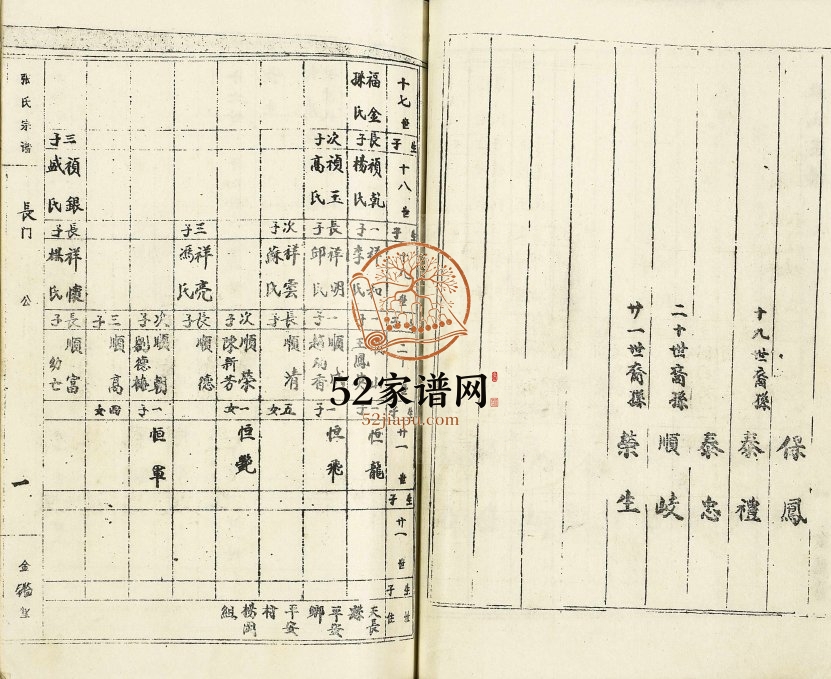 保鳳
十九世裔孫
泰禮
泰忠
二十世裔孫
順岐
廿一世裔孫
榮生
十七世
生子
十八世
生子
生子
廿一世
生子
廿一世
生子
世住
福金
孫氏
長子
禎乾
楊氏
一子
祥和
李氏
恒龍
天長
縣
次子
禎玉
高氏
長子
祥明
邱氏
一子
一子
恒飛
平安
鄉
次子
祥雲
蘇氏
長子
順清
五女
平安
村
次子
順榮
陳新芳
一女
恒艷
楊岡
組
三子
祥亮
馮氏
長子
順德
次子
順朝
劉德梅
一子
恒軍
三子
順高
四女
三子
禎銀
盛氏
長子
祥懷
楊氏
長子
順富
幼亡
张氏宗谱
長门
公
一
金鑑堂
52家谱网
52jiapu.com